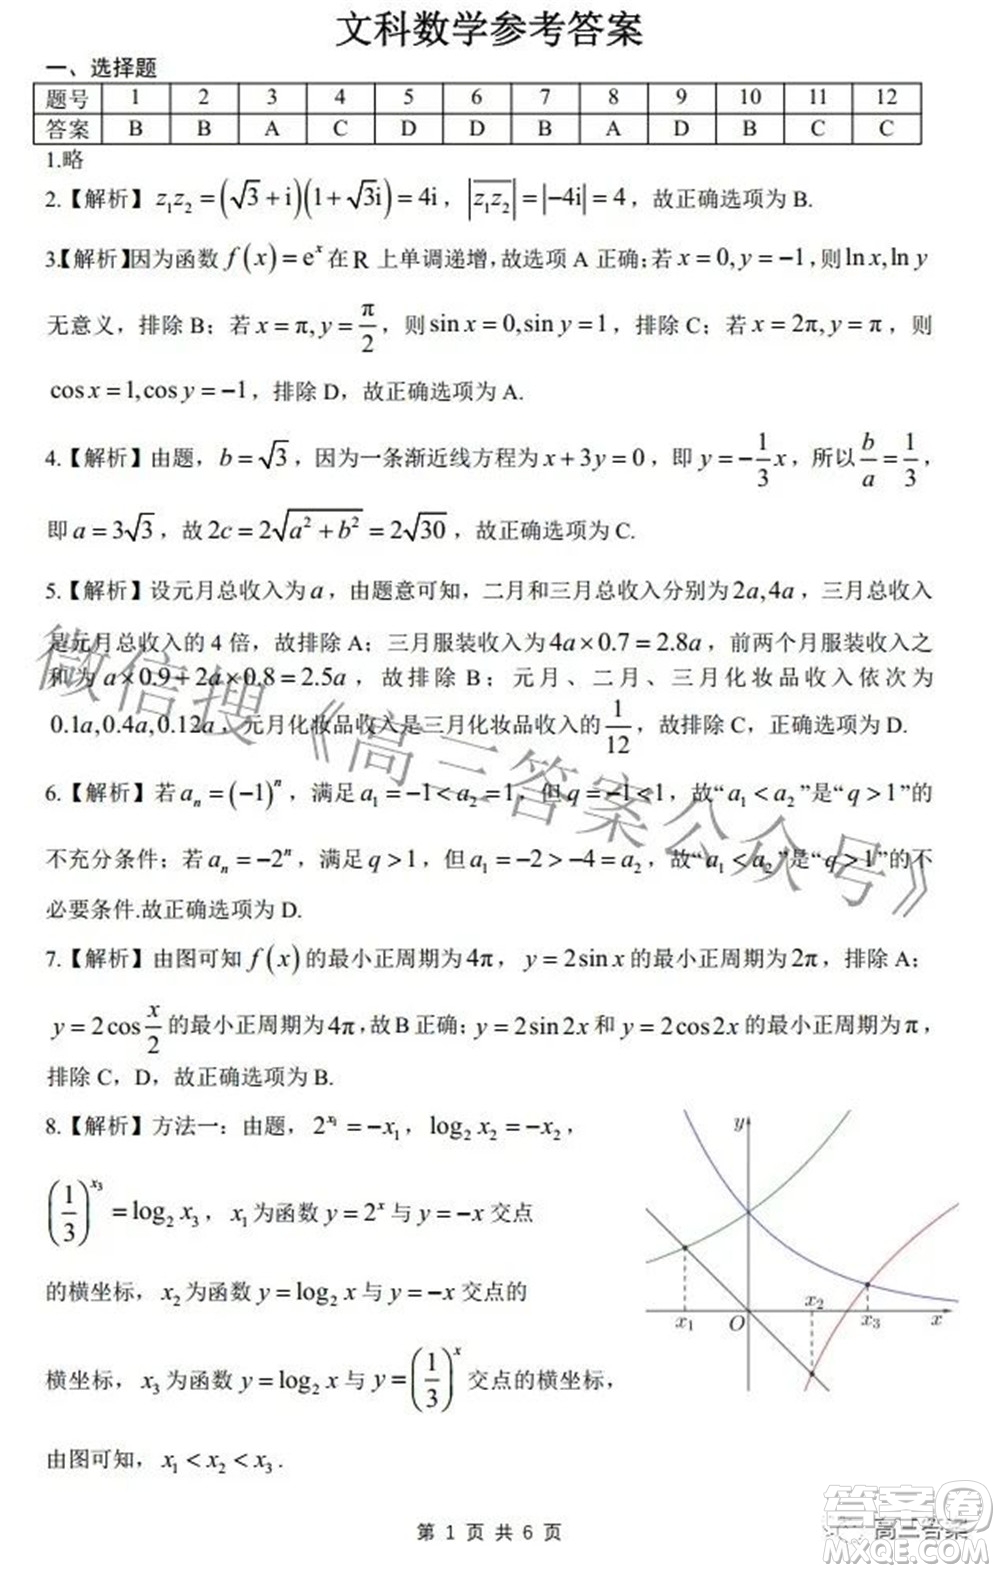 文科数学参考答案
一、选择题
题号 1 2 3 4 5 6 7 8 9 10 11 12
答案 B B A C D D B A D B C C
1.略
2.【解析】z₁z₂=(√3+i)(1+√3i)=4i，|z₁z₂|=|-4i|=4，故正确选项为 B.
3.【解析】因为函数 f(x)=eˣ 在 R 上单调递增，故选项 A 正确；若 x=0,y=-1，则 ln x,ln y
无意义，排除 B；若 x=π,y=π/2，则 sin x=0,sin y=1，排除 C；若 x=2π,y=π，则
cos x=1,cos y=-1，排除 D，故正确选项为 A.
4.【解析】由题，b=√3，因为一条渐近线方程为 x+3y=0，即 y=-1/3 x，所以 b/a=1/3，
即 a=3√3，故 2c=2√(a²+b²)=2√30，故正确选项为 C.
5.【解析】设元月总收入为 a，由题意可知，二月和三月总收入分别为 2a,4a，三月总收入
是元月总收入的 4 倍，故排除 A；三月服装收入为 4a×0.7=2.8a，前两个月服装收入之
和为 a×0.9+2a×0.8=2.5a，故排除 B；元月、二月、三月化妆品收入依次为
0.1a,0.4a,0.12a，元月化妆品收入是三月化妆品收入的 1/12，故排除 C，正确选项为 D.
6.【解析】若 aₙ=(-1)ⁿ，满足 a₁=-1<a₂=1，但 q=-1<1，故“a₁<a₂”是“q>1”的
不充分条件；若 aₙ=-2ⁿ，满足 q>1，但 a₁=-2>-4=a₂，故“a₁<a₂”是“q>1”的不
必要条件.故正确选项为 D.
7.【解析】由图可知 f(x) 的最小正周期为 4π，y=2sin x 的最小正周期为 2π，排除 A；
y=2cos x/2 的最小正周期为 4π，故 B 正确；y=2sin 2x 和 y=2cos 2x 的最小正周期为 π，
排除 C，D，故正确选项为 B.
8.【解析】方法一：由题，2^x₁=-x₁，log₂ x₂=-x₂，
(1/3)^x₃=log₂ x₃，x₁ 为函数 y=2ˣ 与 y=-x 交点
的横坐标，x₂ 为函数 y=log₂ x 与 y=-x 交点的
横坐标，x₃ 为函数 y=log₂ x 与 y=(1/3)ˣ 交点的横坐标，
由图可知，x₁<x₂<x₃.
y
x₁ O x₂ x₃ x
微信搜《高三答案公众号》
第 1 页 共 6 页
答案卷
高三答案
MXQE.COM